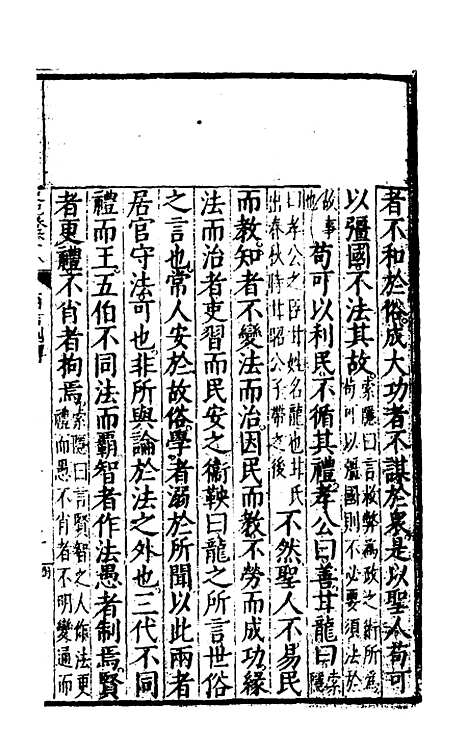 者不和於俗成大功者不謀於衆是以聖人苟可
以彊國不法其故索隱曰言救弊為政之術所為苟可以彊國則不必要須法於
故事也苟可以利民不循其禮孝公曰善甘龍曰索隱
曰孝公之臣甘姓名龍也甘氏出春秋時甘昭公子帶之後不然聖人不易民
而教知者不變法而治因民而教不勞而成功緣
法而治者吏習而民安之衞鞅曰龍之所言世俗
之言也常人安於故俗學者溺於所聞以此兩者
居官守法可也非所與論於法之外也三代不同
禮而王五伯不同法而霸智者作法愚者制焉賢
者更禮不肖者拘焉索隱曰言賢智之人作法更禮而愚不肖者不明變通而